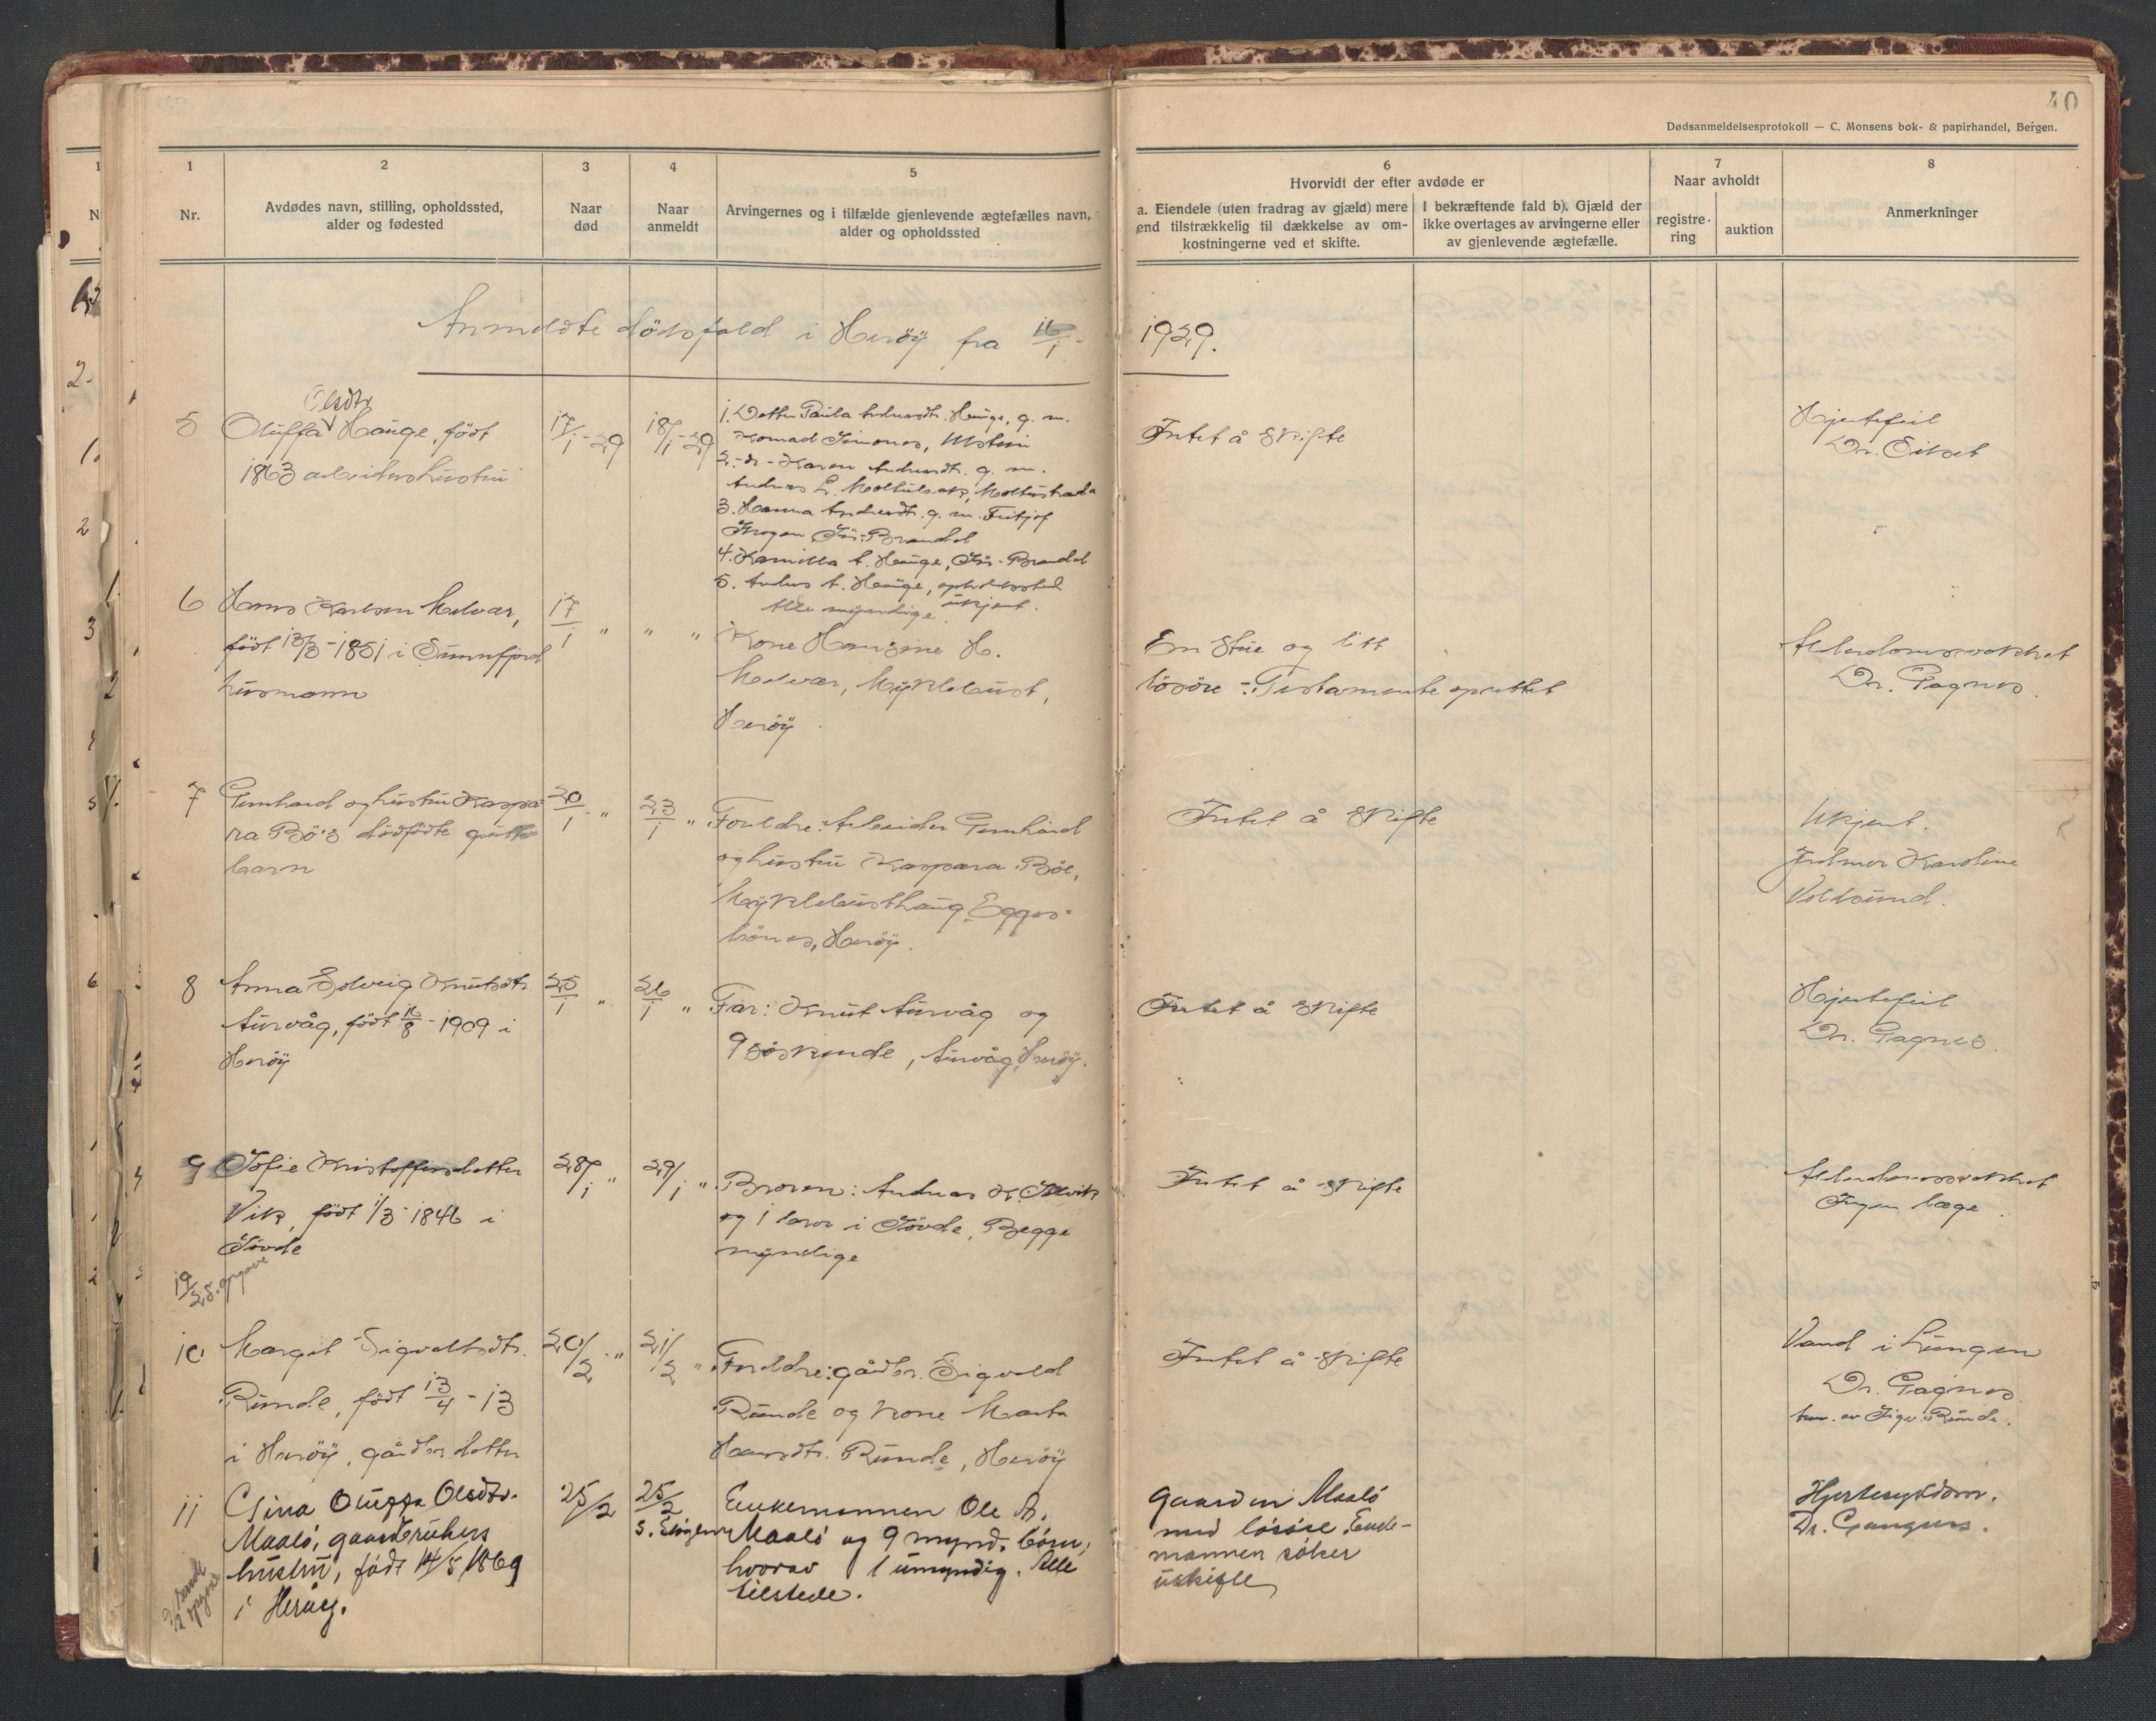 40
Dødsanmeldelsesprotokoll — C. Monsens bok- & papirhandel, Bergen.
1
2
3
4
5
6
7
8
Nr.
Avdødes navn, stilling, opholdssted,
alder og fødested
Naar
død
Naar
anmeldt
Arvingernes og i tilfælde gjenlevende ægtefælles navn,
alder og opholdssted
Hvorvidt der efter avdøde er
a. Eiendele (uten fradrag av gjæld) mere
end tilstrækkelig til dækkelse av om-
kostningerne ved et skifte.
I bekræftende fald b). Gjæld der
ikke overtages av arvingerne eller
av gjenlevende ægtefælle.
Naar avholdt
registre-
ring
auktion
Anmerkninger
Anmeldte dödsfald i Heröy fra 16/1- 1929.
5
Olsdtr
Oluffa Hauge, födt
1863 arbeiderhustru
17/1-29
18/1-29
1. Datter Paula Andreasdtr. Hauge, g. m.
Konrad Simones, Ulstein
2. -do- Karen Andreasdtr. g. m.
Andreas L. Moltubak, Moltustrada
3. Hanna Andreasdtr. g. m. Fritjof
Krogen, Brandal
4. Kamilla A. Hauge, Brandal
5. Anders A. Hauge, opholdssted
ukjent.
Alle myndige
Intet å skifte
Hjertefeil
Dr. Eikset
6
Hans Karlsen Melvær,
födt 13/3-1851 i Sunnfjord
husmann
17/1 "
" "
Kone Hansine H.
Melvær, Myklebust,
Heröy.
En stue og litt
lösöre -: Testamente oprettet
Alderdomssvakhet
Dr. Gagnes.
7
Gernhard og hustru Kaspa-
ra Bö's dödfödte gutte
barn
20/1 - "
23/1 "
Foreldre: Arbeider Gernhard
og hustru Kaspara Böe,
Myklebusthaug, Eggesbönes, Heröy.
Intet å skifte
Ukjent.
Jordmor Karoline
Voldsund.
8
Anna Solveig Knutsdtr.
Aurvåg, födt 16/8-1909 i
Heröy
25/1 "
26/1 "
Far: Knut Aurvåg og
9 söskende, Aurvåg, Heröy.
Intet å skifte
Hjertefeil
Dr. Gagnes.
9
Sofie Kristoffersdatter
Vik, födt 1/3-1846 i
Sövde
19/2 s. opgave
28/1 "
29/1 "
Broren: Andreas K.
og 1 bror i Sövde, Begge
myndige
Intet å skifte
Alderdomssvakhet
Ingen læge.
10
Margit Sigvaltsdtr.
Runde, födt 13/4-13
i Heröy, gårdbr. datter
20/2 - "
21/2 "
Foreldre: gårdbr. Sigvald
Runde og kone Marta
Hansdtr. Runde, Heröy
Intet å skifte
Vand i Lungen
Dr. Gagnes
anm. av Sigv. Runde.
11
Gina Oluffa Olsdtr.
Maalö, gaardbrukers
hustru, födt 14/5 1869
i Heröy.
25/2
25/2
Enkemannen Ole A.
Maalö og 9 mynd. börn,
hvorav 1 umyndig. Alle
tilstede.
Gaarden Maalö
med lösöre. Enke-
mannen söker
uskifte
Hjertesykdom.
Dr. Gangnes.